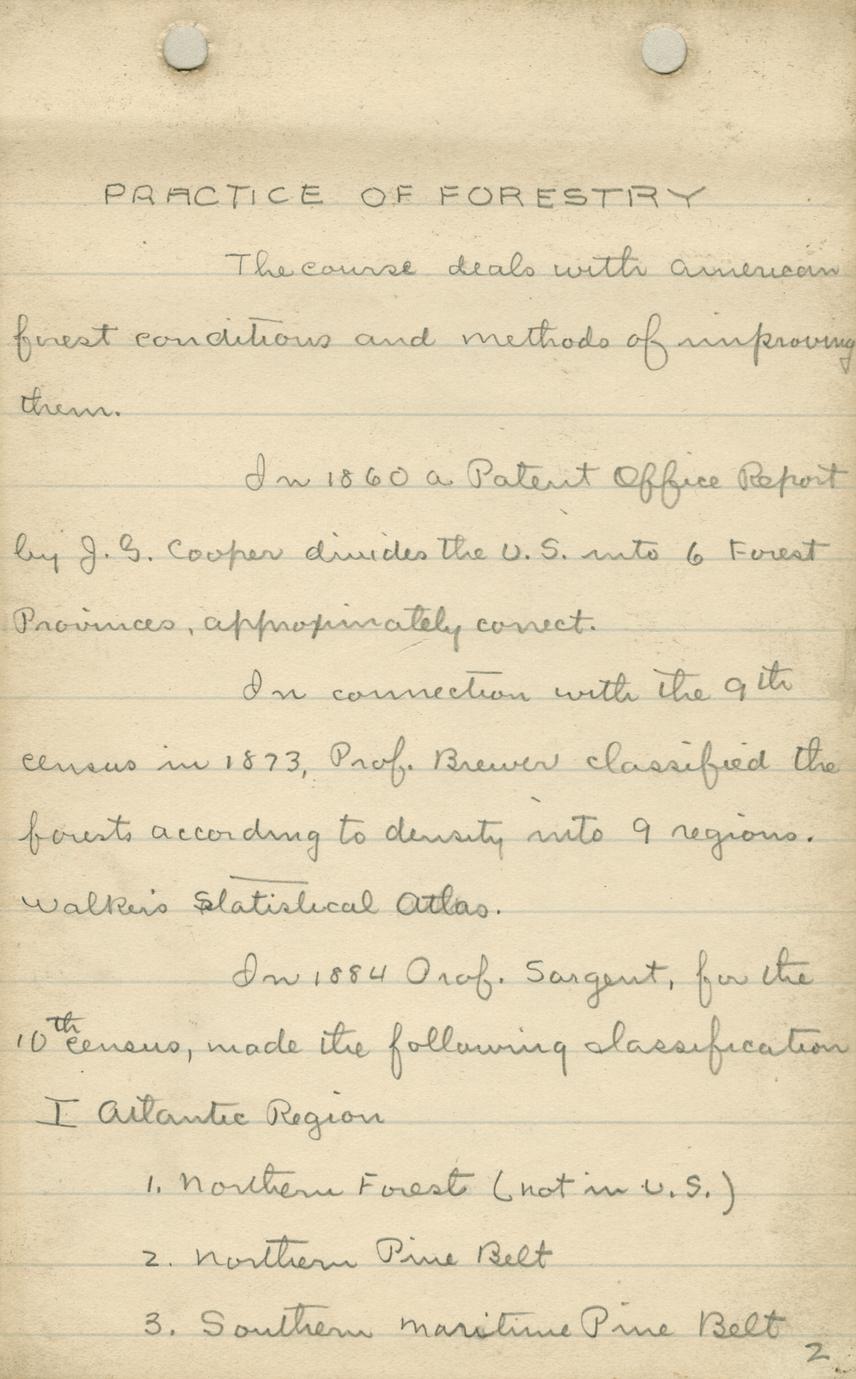 PRACTICE OF FORESTRY
The course deals with American
forest conditions and methods of improving
them.
In 1860 a Patent Office Report
by J. G. Cooper divides the U.S. into 6 Forest
Provinces, approximately correct.
In connection with the 9th
census in 1873, Prof. Brewer classified the
forests according to density into 9 regions.
Walker's Statistical Atlas.
In 1884 Prof. Sargent, for the
10th census, made the following classification
I Atlantic Region
1. Northern Forest (not in U.S.)
2. Northern Pine Belt
3. Southern Maritime Pine Belt
2